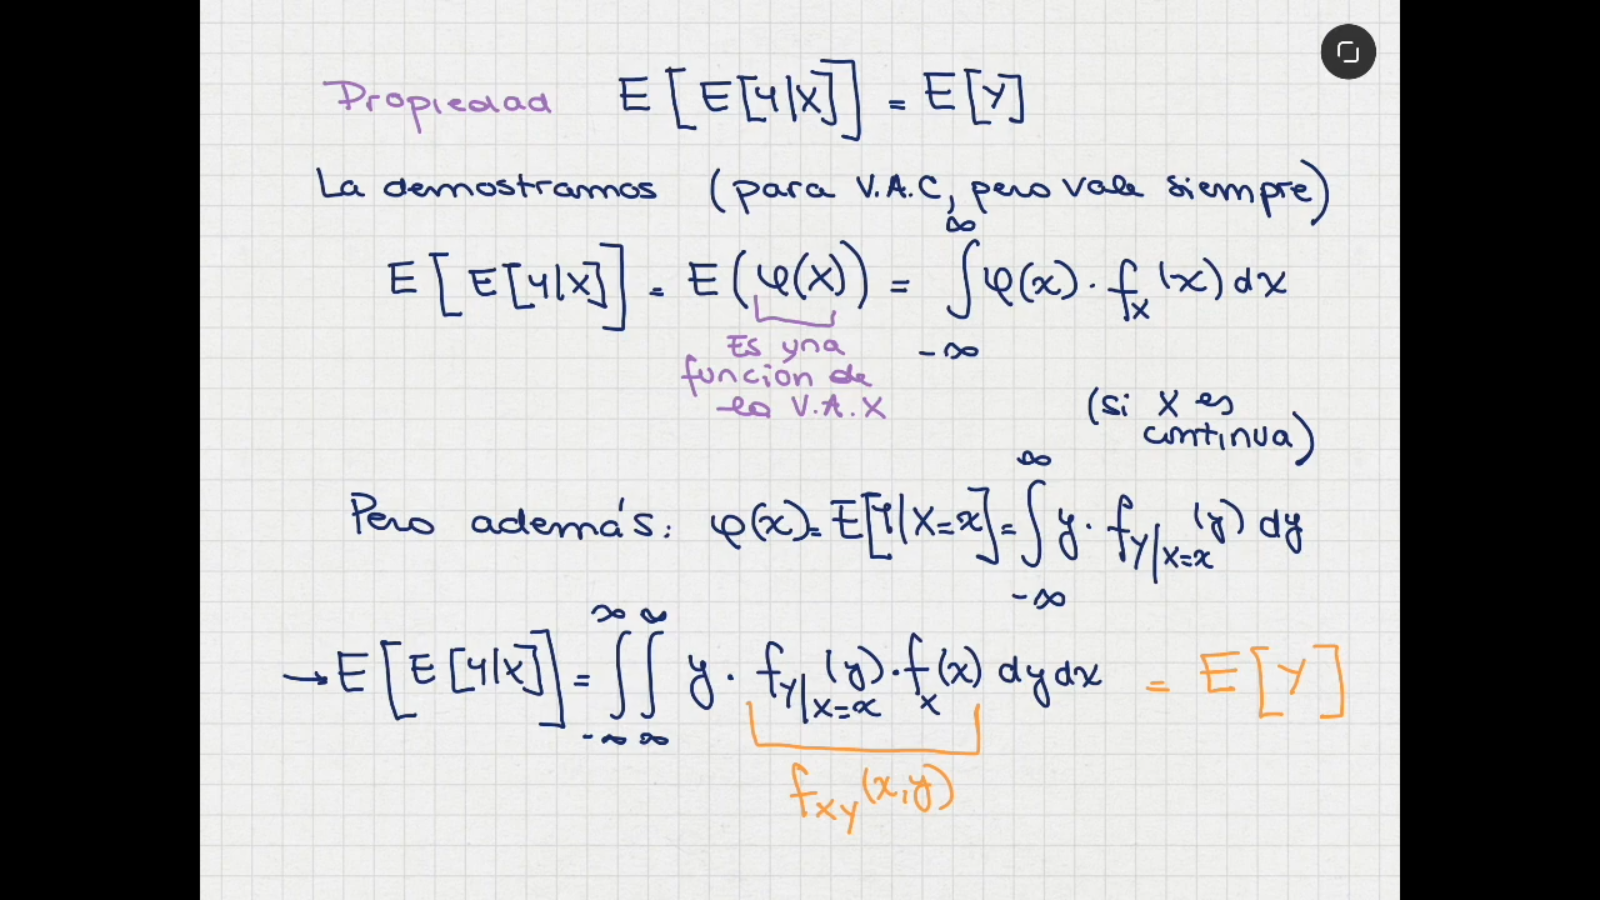 Propiedad E[E[Y|X]] = E[Y]
La demostramos (para V.A.C, pero vale siempre)
E[E[Y|X]] = E(φ(X)) = ∫_{-∞}^{∞} φ(x) · f_X(x) dx
Es una
función de
la V.A. X
(si X es
continua)
Pero además: φ(x) = E[Y|X=x] = ∫_{-∞}^{∞} y · f_{Y|X=x}(y) dy
→ E[E[Y|X]] = ∫_{-∞}^{∞} ∫_{-∞}^{∞} y · f_{Y|X=x}(y) · f_X(x) dy dx = E[Y]
f_{XY}(x,y)